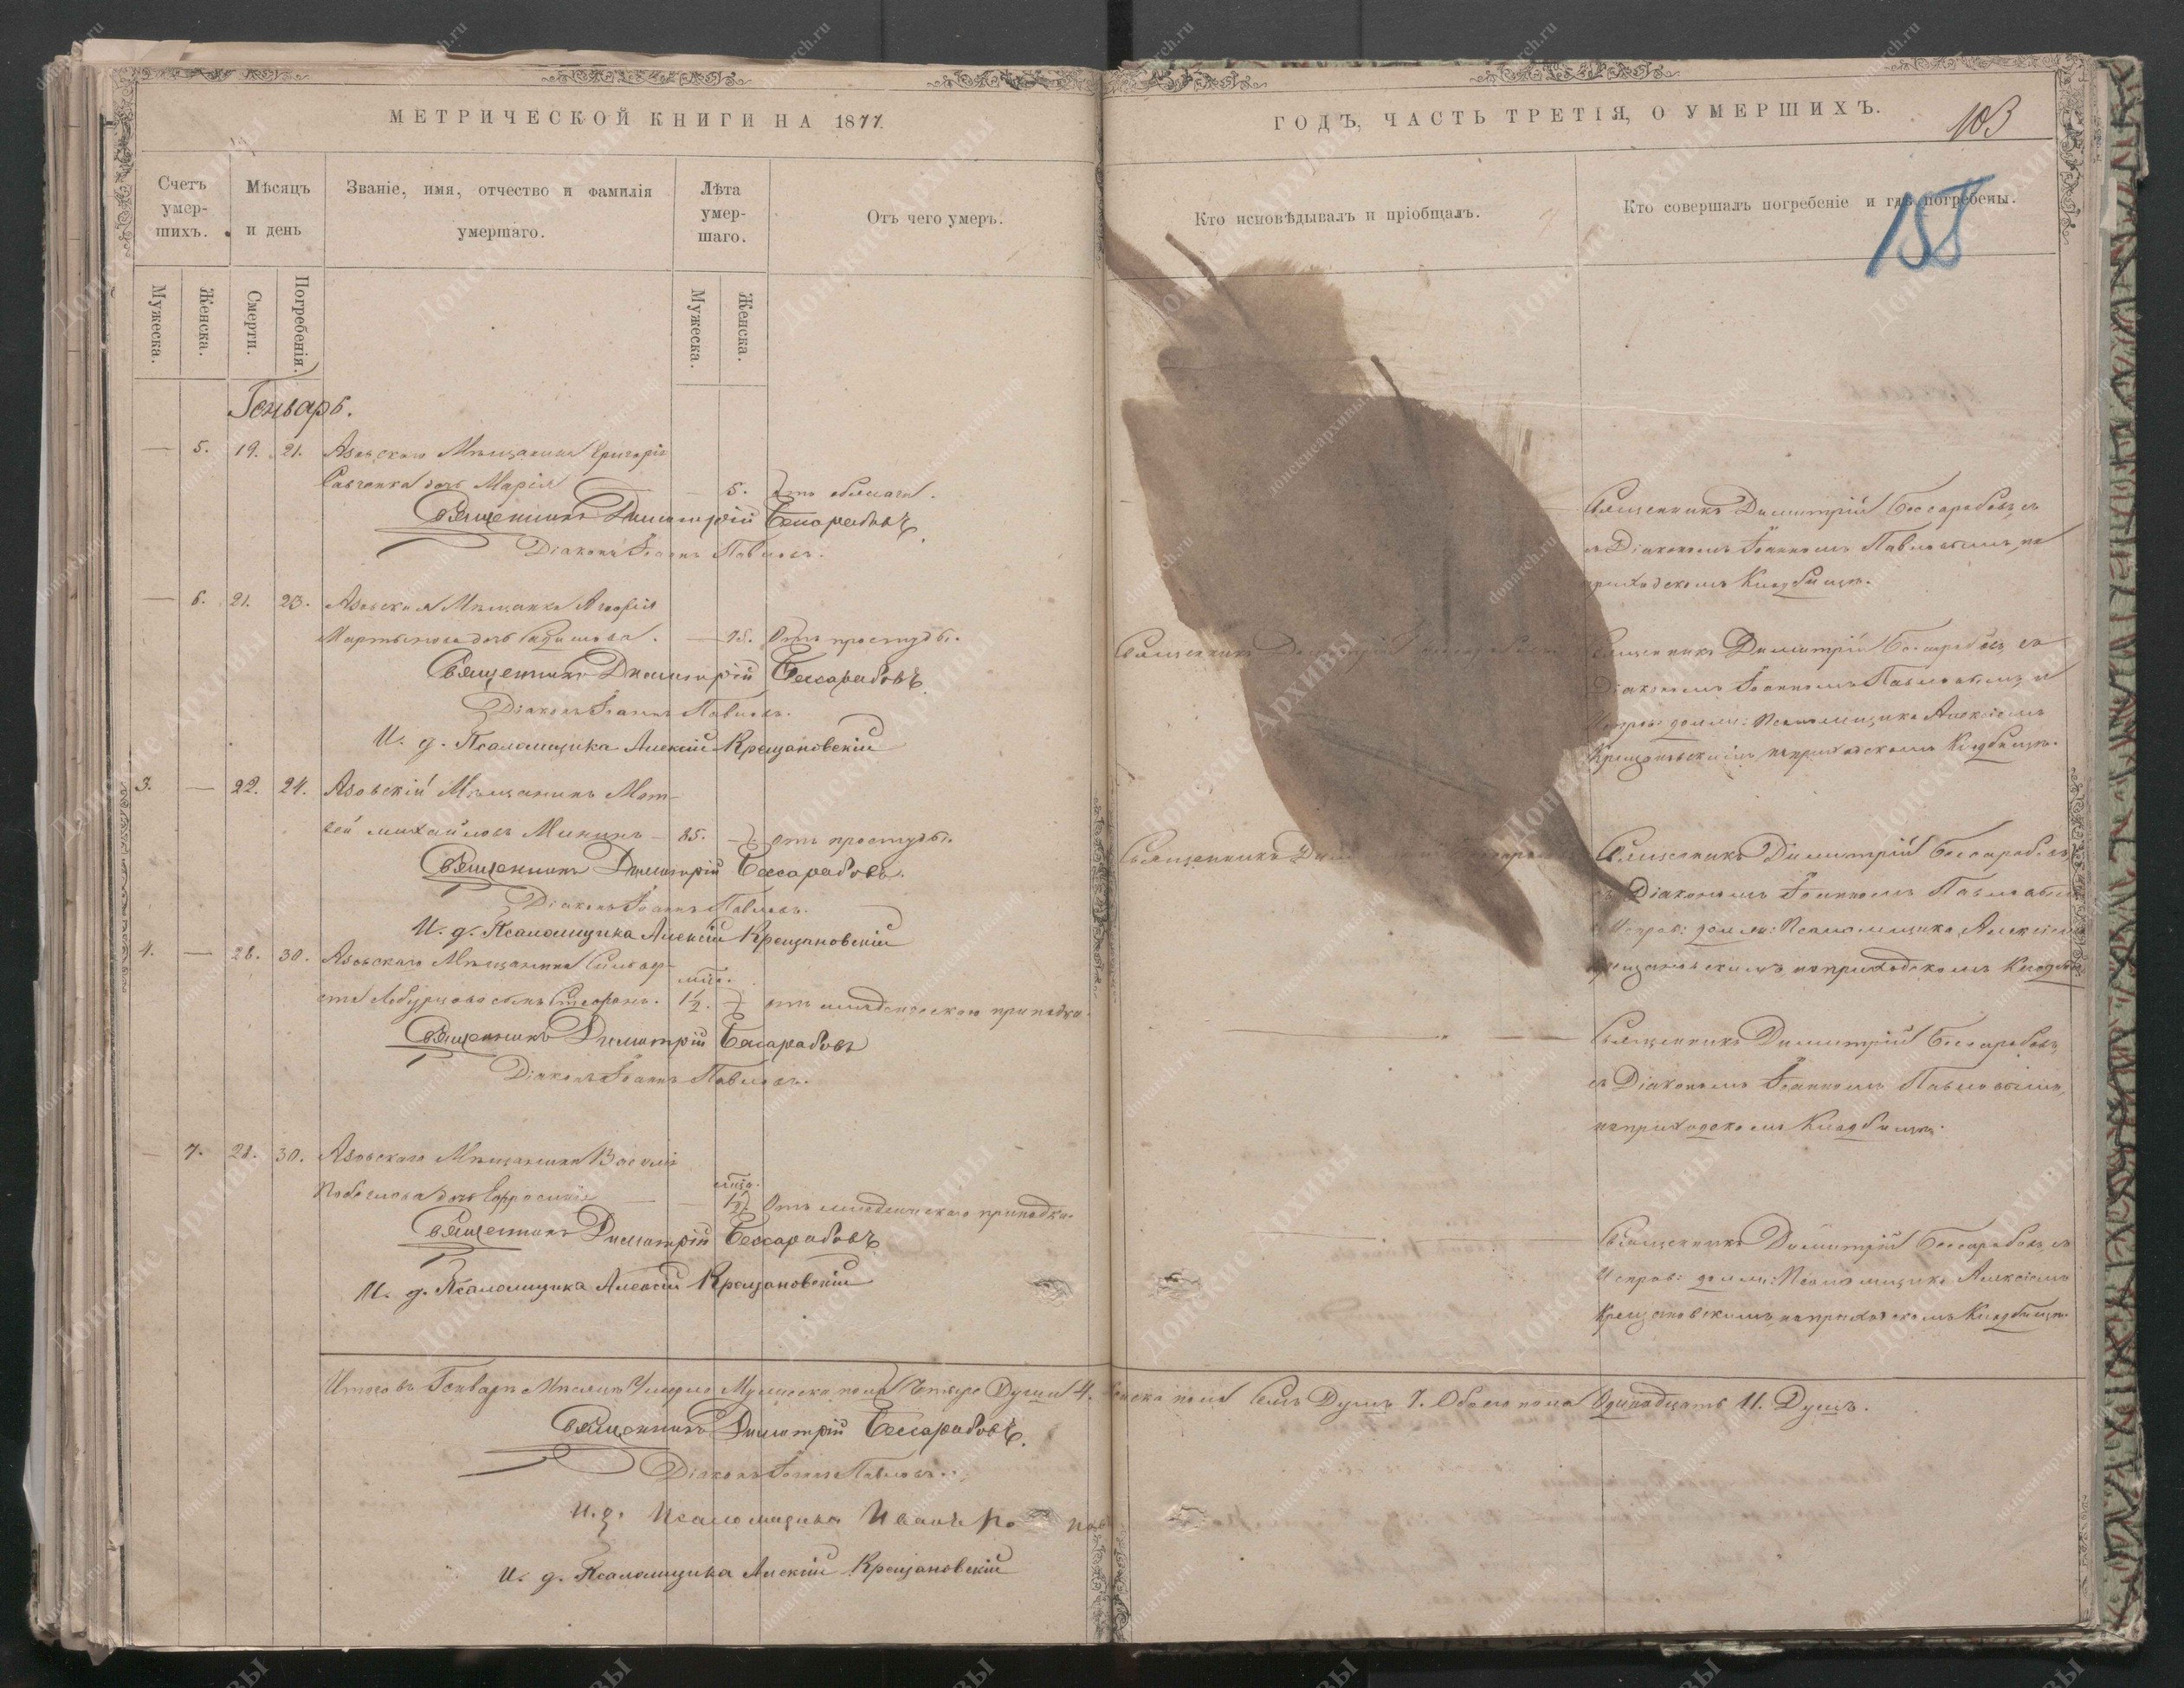 МЕТРИЧЕСКОЙ КНИГИ НА 1877
ГОДЪ, ЧАСТЬ ТРЕТІЯ, О УМЕРШИХЪ.
103
155
Счетъ умер- шихъ.
Мѣсяцъ и день
Званіе, имя, отчество и фамилія умершаго.
Лѣта умер- шаго.
Отъ чего умеръ.
Кто исповѣдывалъ и пріобщалъ.
Кто совершалъ погребеніе и гдѣ погребены.
Мужеска.
Женска.
Смерти.
Погребенія.
Мужеска.
Женска.
Генварь.
— 5. 19. 21. Азовскаго Мѣщанина Григорія
Савченка дочь Марія — 5.
Священникъ Димитрій Бессарабовъ.
Діаконъ Іоаннъ Павловъ.
Священникъ Димитрій Бессарабовъ, съ
Діакономъ Іоанномъ Павловымъ, на
приходскомъ Кладбищѣ.
— 6. 21. 23. Азовская Мѣщанка
Мартынова дочь — Отъ простуды.
Священникъ Димитрій Бессарабовъ.
Діаконъ Іоаннъ Павловъ.
И. д. Псаломщика Алексій Крещановскій
Священникъ Димитрій
Священникъ Димитрій Бессарабовъ, съ
Діакономъ Іоанномъ Павловымъ, и
Исправ: долж: Псаломщика Алексіемъ
Крещановскимъ, на приходскомъ Кладбищѣ.
3. — 22. 24. Азовскій Мѣщанинъ Мат-
вей Михайловъ Микинъ — 85. — отъ простуды.
Священникъ Димитрій Бессарабовъ.
Діаконъ Іоаннъ Павловъ.
И. д. Псаломщика Алексій Крещановскій
Священникъ
Священникъ Димитрій Бессарабовъ,
съ Діакономъ Іоанномъ Павловымъ
и Исправ: долж: Псаломщика Алексіемъ
Крещановскимъ, на приходскомъ Кладбищѣ
4. — 28. 30. Азовскаго Мѣщанина
сынъ Стефанъ. 1½ — отъ младенческаго припадка.
Священникъ Димитрій Бессарабовъ
Діаконъ Іоаннъ Павловъ.
Священникъ Димитрій Бессарабовъ,
съ Діакономъ Іоанномъ Павловымъ,
на приходскомъ Кладбищѣ.
— 7. 28. 30. Азовскаго Мѣщанина Василія
дочь Ефросинія — 1½ Отъ младенческаго припадка.
Священникъ Димитрій Бессарабовъ
И. д. Псаломщика Алексій Крещановскій
Священникъ Димитрій Бессарабовъ, съ
Исправ: долж: Псаломщика Алексіемъ
Крещановскимъ, на приходскомъ Кладбищѣ.
Итого въ Генварѣ Мѣсяцѣ Умерло Мужеска пола Четыре Души 4. Женска пола Семь Душъ 7. Обоего пола Одинадцать 11. Душъ.
Священникъ Димитрій Бессарабовъ.
Діаконъ Іоаннъ Павловъ.
И. д. Псаломщика Иванъ
И. д. Псаломщика Алексій Крещановскій
Донские Архивы
donarch.ru
донскиеархивы.рф